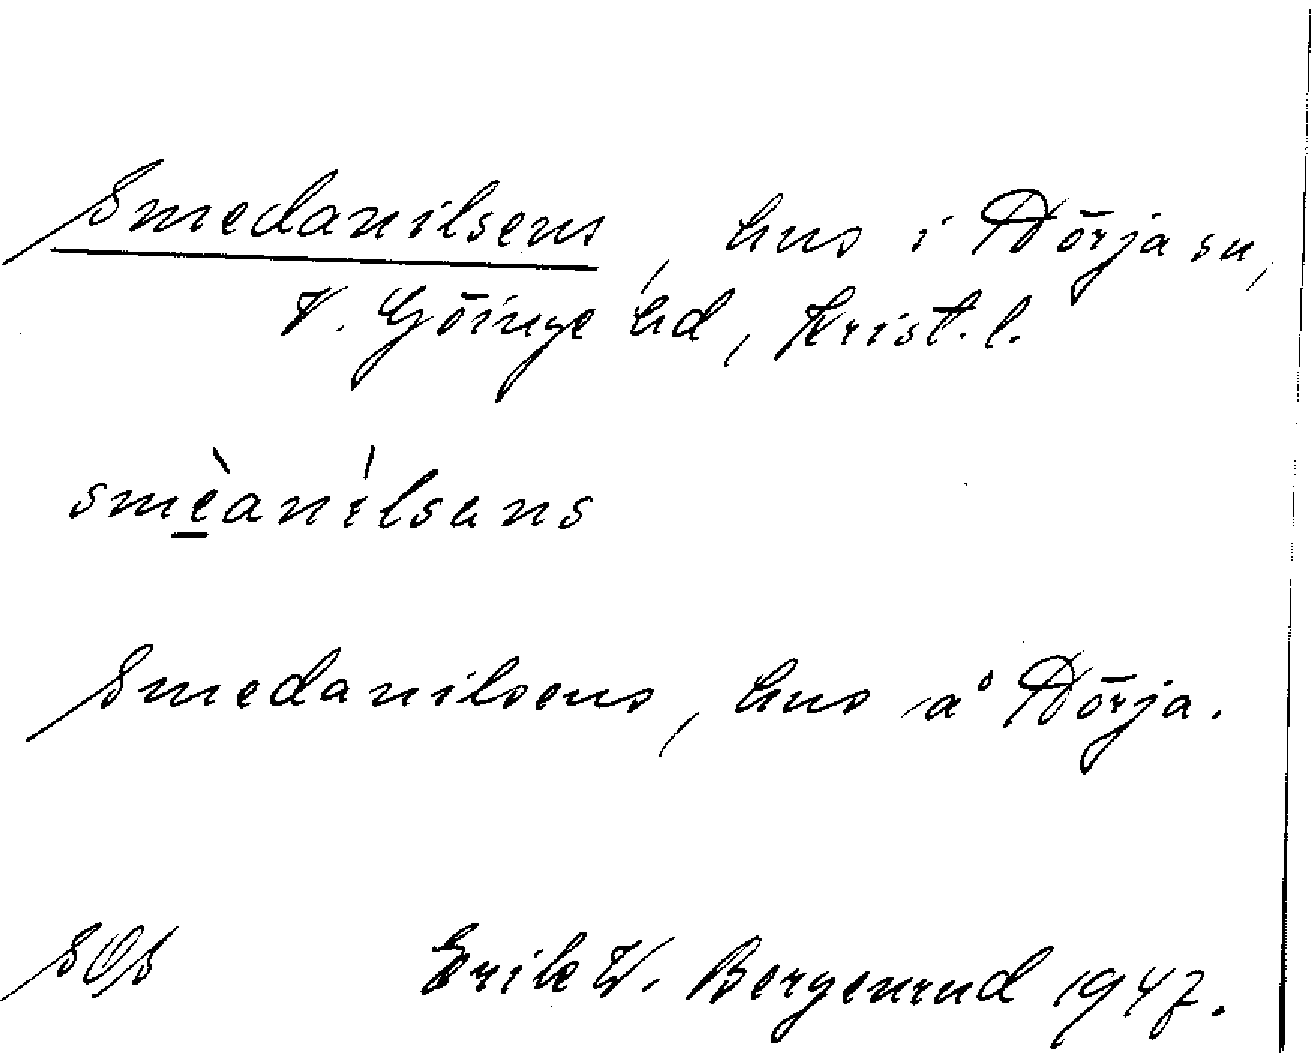 Smedanilsens, hus i Nörja sn,
V. Göinge hd, Krist. l.
smèanílsans
Smedanilsens, hus å Nörja.
SOS Erik W. Bergenrud 1947.